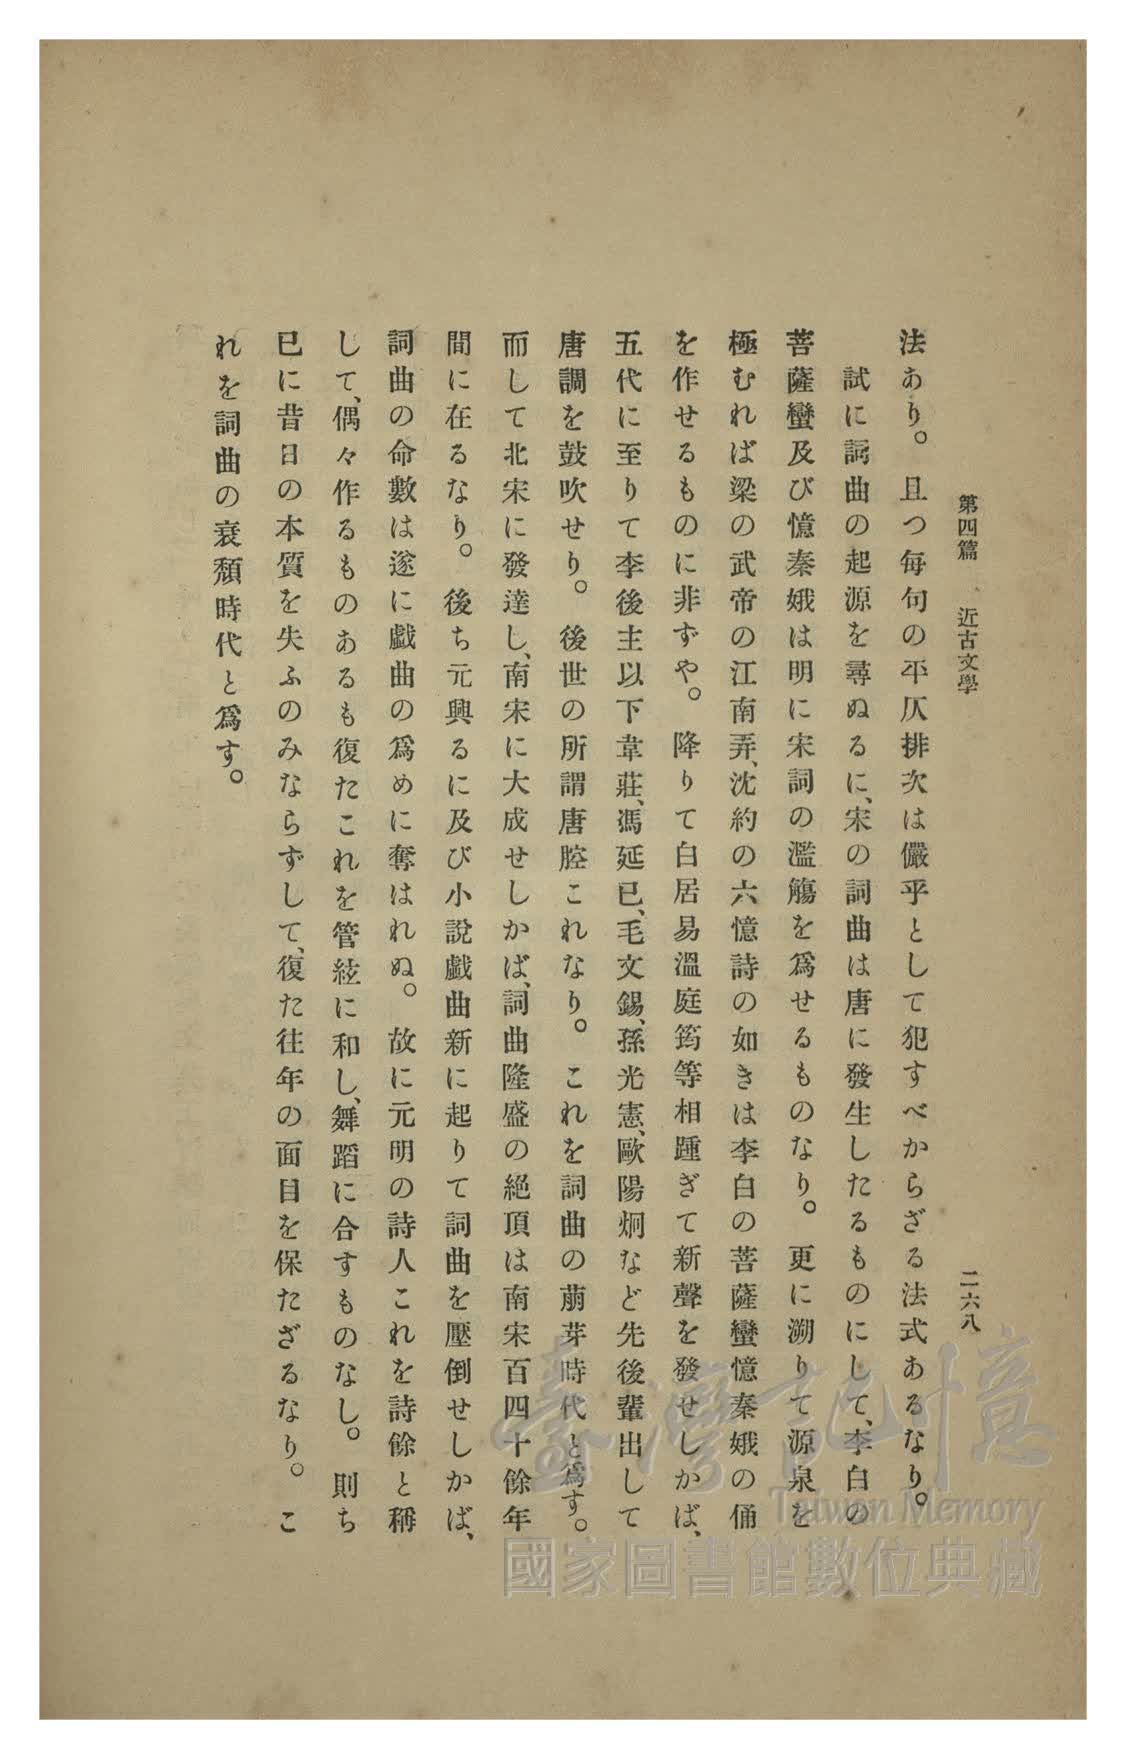 第四篇　近古文學　二六八
法あり。且つ每句の平仄排次は儼乎として犯すべからざる法式あるなり。
試に詞曲の起源を尋ぬるに、宋の詞曲は唐に發生したるものにして、李白の
菩薩蠻及び憶秦娥は明に宋詞の濫觴を爲せるものなり。更に溯りて源泉を
極むれば梁の武帝の江南弄、沈約の六憶詩の如きは李白の菩薩蠻憶秦娥の俑
を作せるものに非ずや。降りて白居易溫庭筠等相踵ぎて新聲を發せしかば、
五代に至りて李後主以下韋莊、馮延已、毛文錫、孫光憲、歐陽炯など先後輩出して
唐調を鼓吹せり。後世の所謂唐腔これなり。これを詞曲の萠芽時代と爲す。
而して北宋に發達し、南宋に大成せしかば、詞曲隆盛の絕頂は南宋百四十餘年
間に在るなり。後ち元興るに及び小說戲曲新に起りて詞曲を壓倒せしかば、
詞曲の命數は遂に戲曲の爲めに奪はれぬ。故に元明の詩人これを詩餘と稱
して、偶々作るものあるも復たこれを管絃に和し、舞蹈に合すものなし。則ち
已に昔日の本質を失ふのみならずして、復た往年の面目を保たざるなり。こ
れを詞曲の衰頽時代と爲す。
臺灣記憶
Taiwan Memory
國家圖書館數位典藏